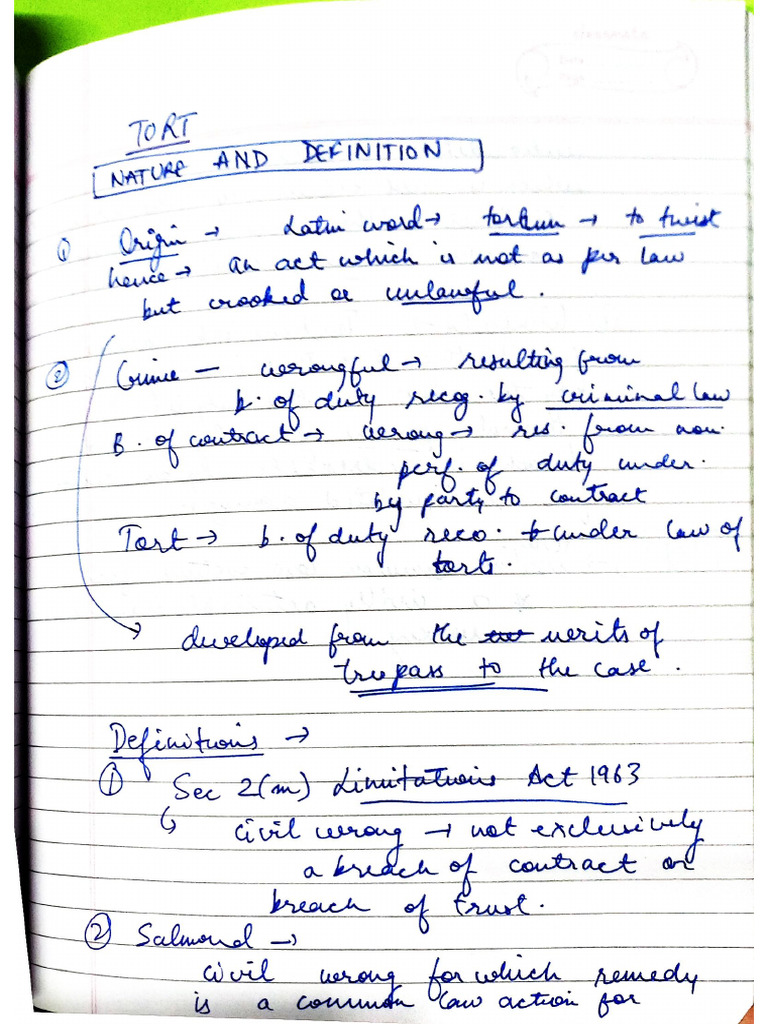 TORT
NATURE AND DEFINITION
① Origin → Latin word → tortum → to twist
hence → an act which is not as per law
but crooked or unlawful.
② Crime – wrongful → resulting from
b. of duty recog. by criminal law
B. of contract → wrong → res. from non.
perf. of duty under.
by party to contract
Tort → b. of duty reco. under law of
torts.
developed from the writs of
trespass to the case.
Definitions →
① Sec 2(m) Limitations Act 1963
civil wrong → not exclusively
a breach of contract or
breach of trust.
② Salmond →
civil wrong for which remedy
is a common law action for